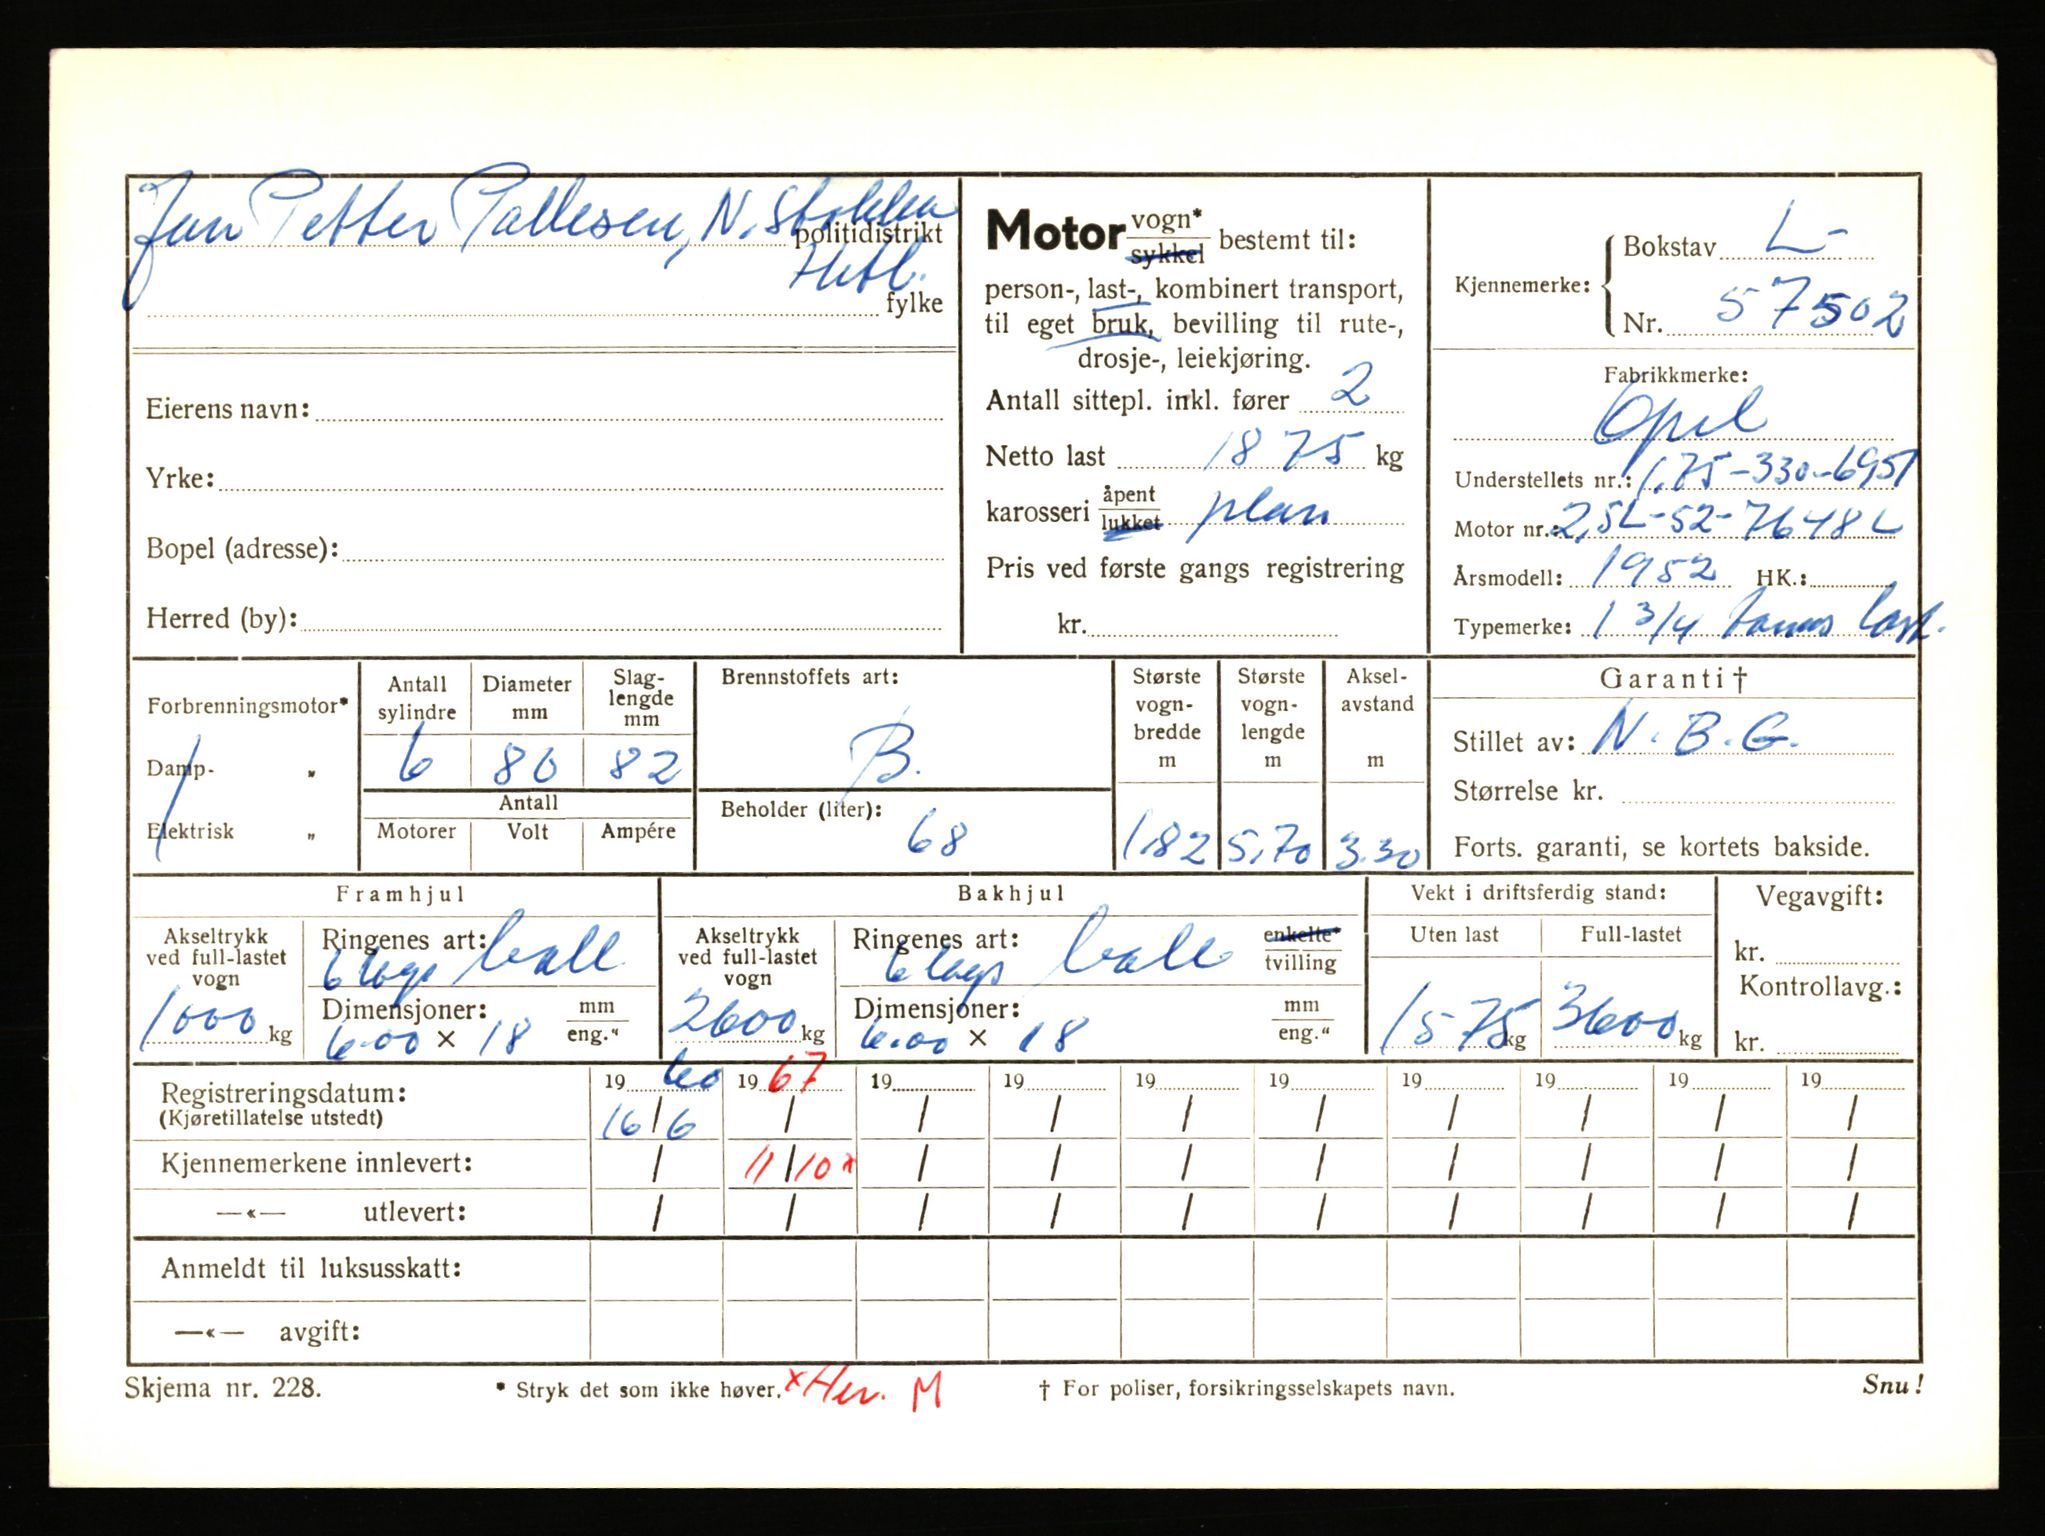 Jan Petter Pallesen, N. Stokka
politidistrikt
Hetl.
fylke
Eierens navn:
Yrke:
Bopel (adresse):
Herred (by):
Motor vogn* sykkel bestemt til:
person-, last-, kombinert transport,
til eget bruk, bevilling til rute-,
drosje-, leiekjøring.
Antall sittepl. inkl. fører 2
Netto last 1875 kg
karosseri åpent lukket plan
Pris ved første gangs registrering
kr.
Kjennemerke: Bokstav L-
Nr. 57502
Fabrikkmerke:
Opel
Understellets nr.: 1,75-330-6951
Motor nr.: 2,5L-52-7648L
Årsmodell: 1952 HK.:
Typemerke: 1 3/4 tonns last.
Forbrenningsmotor*
Damp- „
Elektrisk „
Antall sylindre 6
Diameter mm 80
Slaglengde mm 82
Antall
Motorer Volt Ampére
Brennstoffets art:
B.
Beholder (liter):
68
Største vogn-bredde m 1.82
Største vogn-lengde m 5,70
Aksel-avstand m 3.30
Garanti †
Stillet av: N.B.G.
Størrelse kr.
Forts. garanti, se kortets bakside.
Framhjul
Akseltrykk ved full-lastet vogn
1000 kg
Ringenes art: ball
6 lags
Dimensjoner: mm
6.00 x 18 eng.“
Bakhjul
Akseltrykk ved full-lastet vogn
2600 kg
Ringenes art: ball enkelte* tvilling
6 lags
Dimensjoner: mm
6.00 x 18 eng.“
Vekt i driftsferdig stand:
Uten last Full-lastet
1575 kg 3600 kg
Vegavgift:
kr.
Kontrollavg.:
kr.
Registreringsdatum: 19 60 19 67 19 19 19 19 19 19 19 19
(Kjøretillatelse utstedt) 16/6 / / / / / / / / /
Kjennemerkene innlevert: / 11/10 x / / / / / / / /
—«— utlevert: / / / / / / / / / /
Anmeldt til luksusskatt:
—«— avgift:
Skjema nr. 228. * Stryk det som ikke høver. x Her. M † For poliser, forsikringsselskapets navn. Snu!